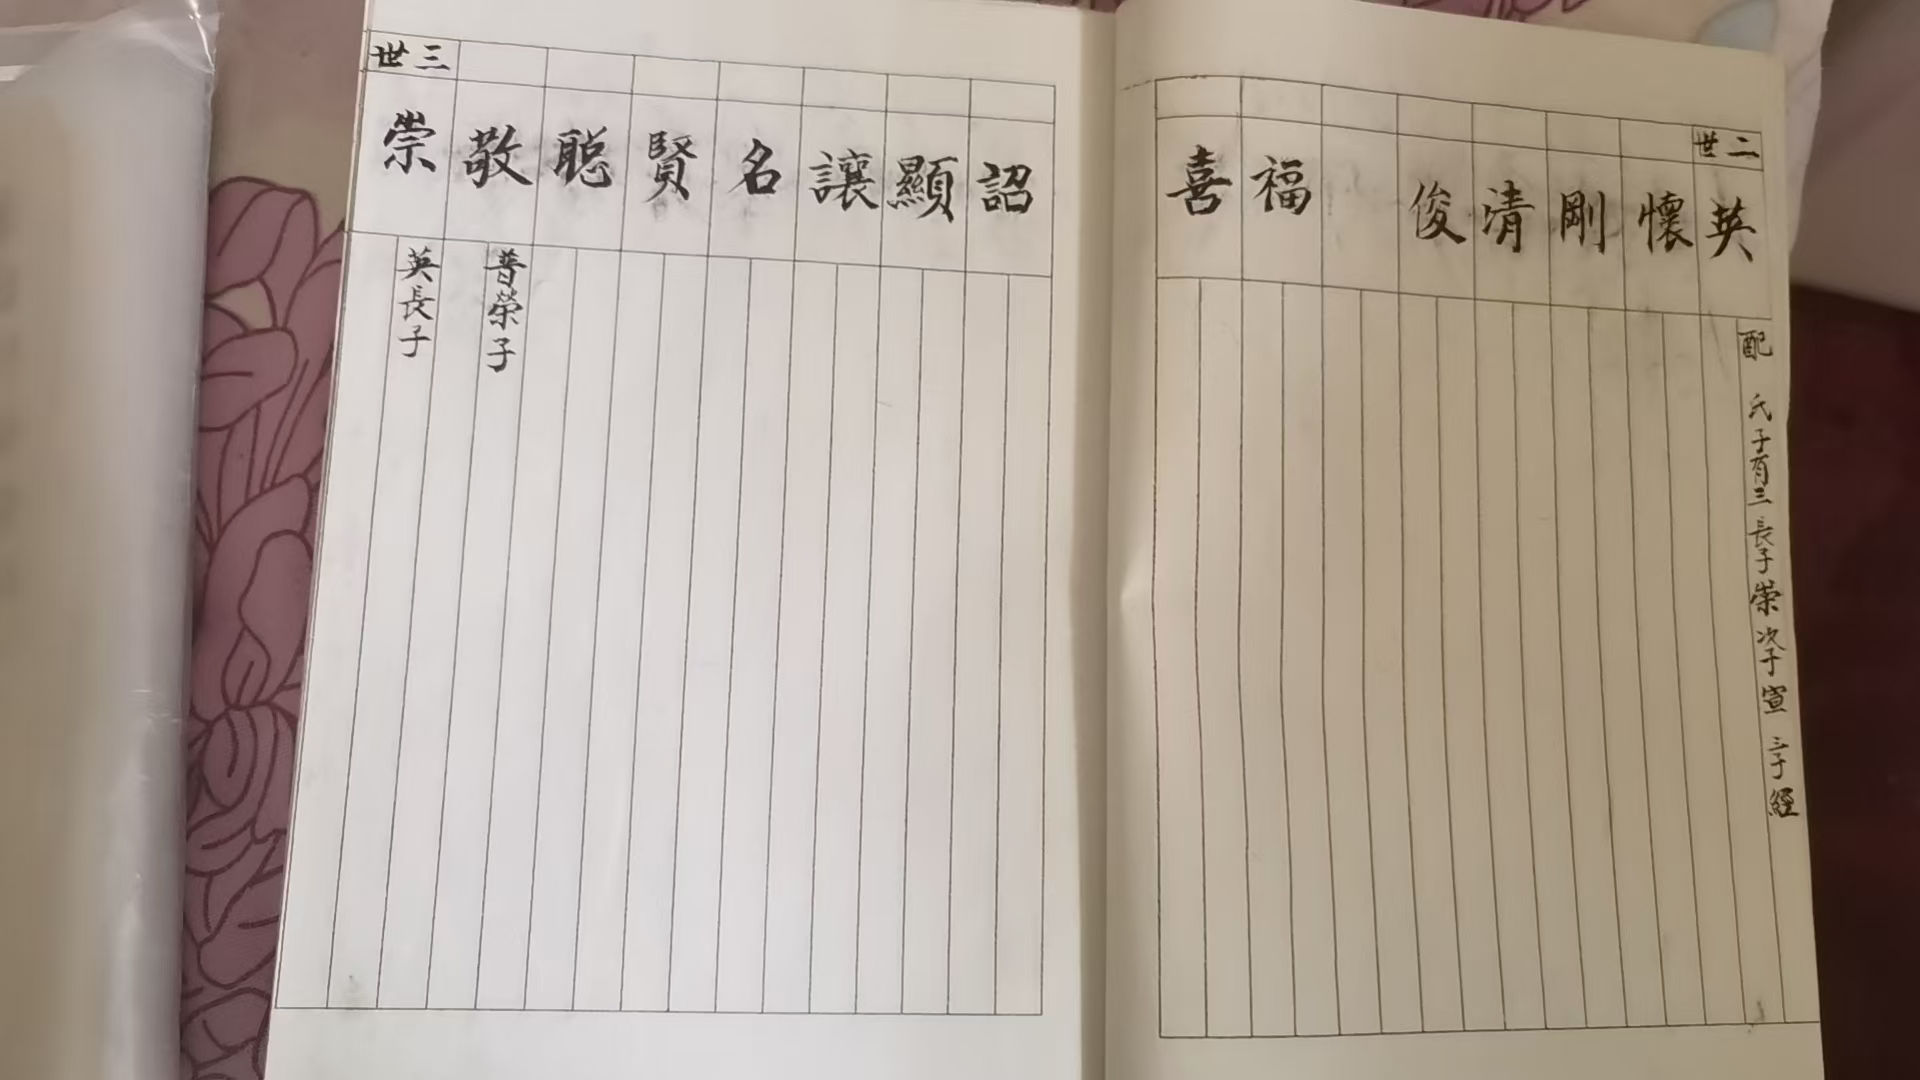 二世
英
配 氏子有三 長子崇 次子宣 三子經
懷
剛
清
俊
福
喜
詔
顯
讓
名
賢
聰
敬
普榮子
三世
崇
英長子